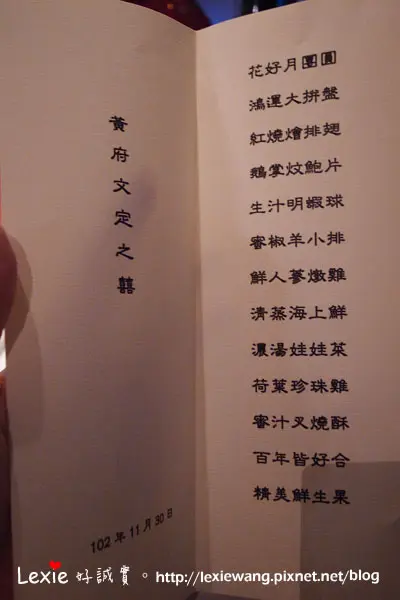 黃府文定之囍
102年11月30日
花好月團圓
鴻運大拼盤
紅燒燴排翅
鵝掌炆鮑片
生汁明蝦球
蜜椒羊小排
鮮人蔘燉雞
清蒸海上鮮
濃湯娃娃菜
荷葉珍珠雞
蜜汁叉燒酥
百年皆好合
精美鮮生果
Lexie 好誠實。http://lexiewang.pixnet.net/blog